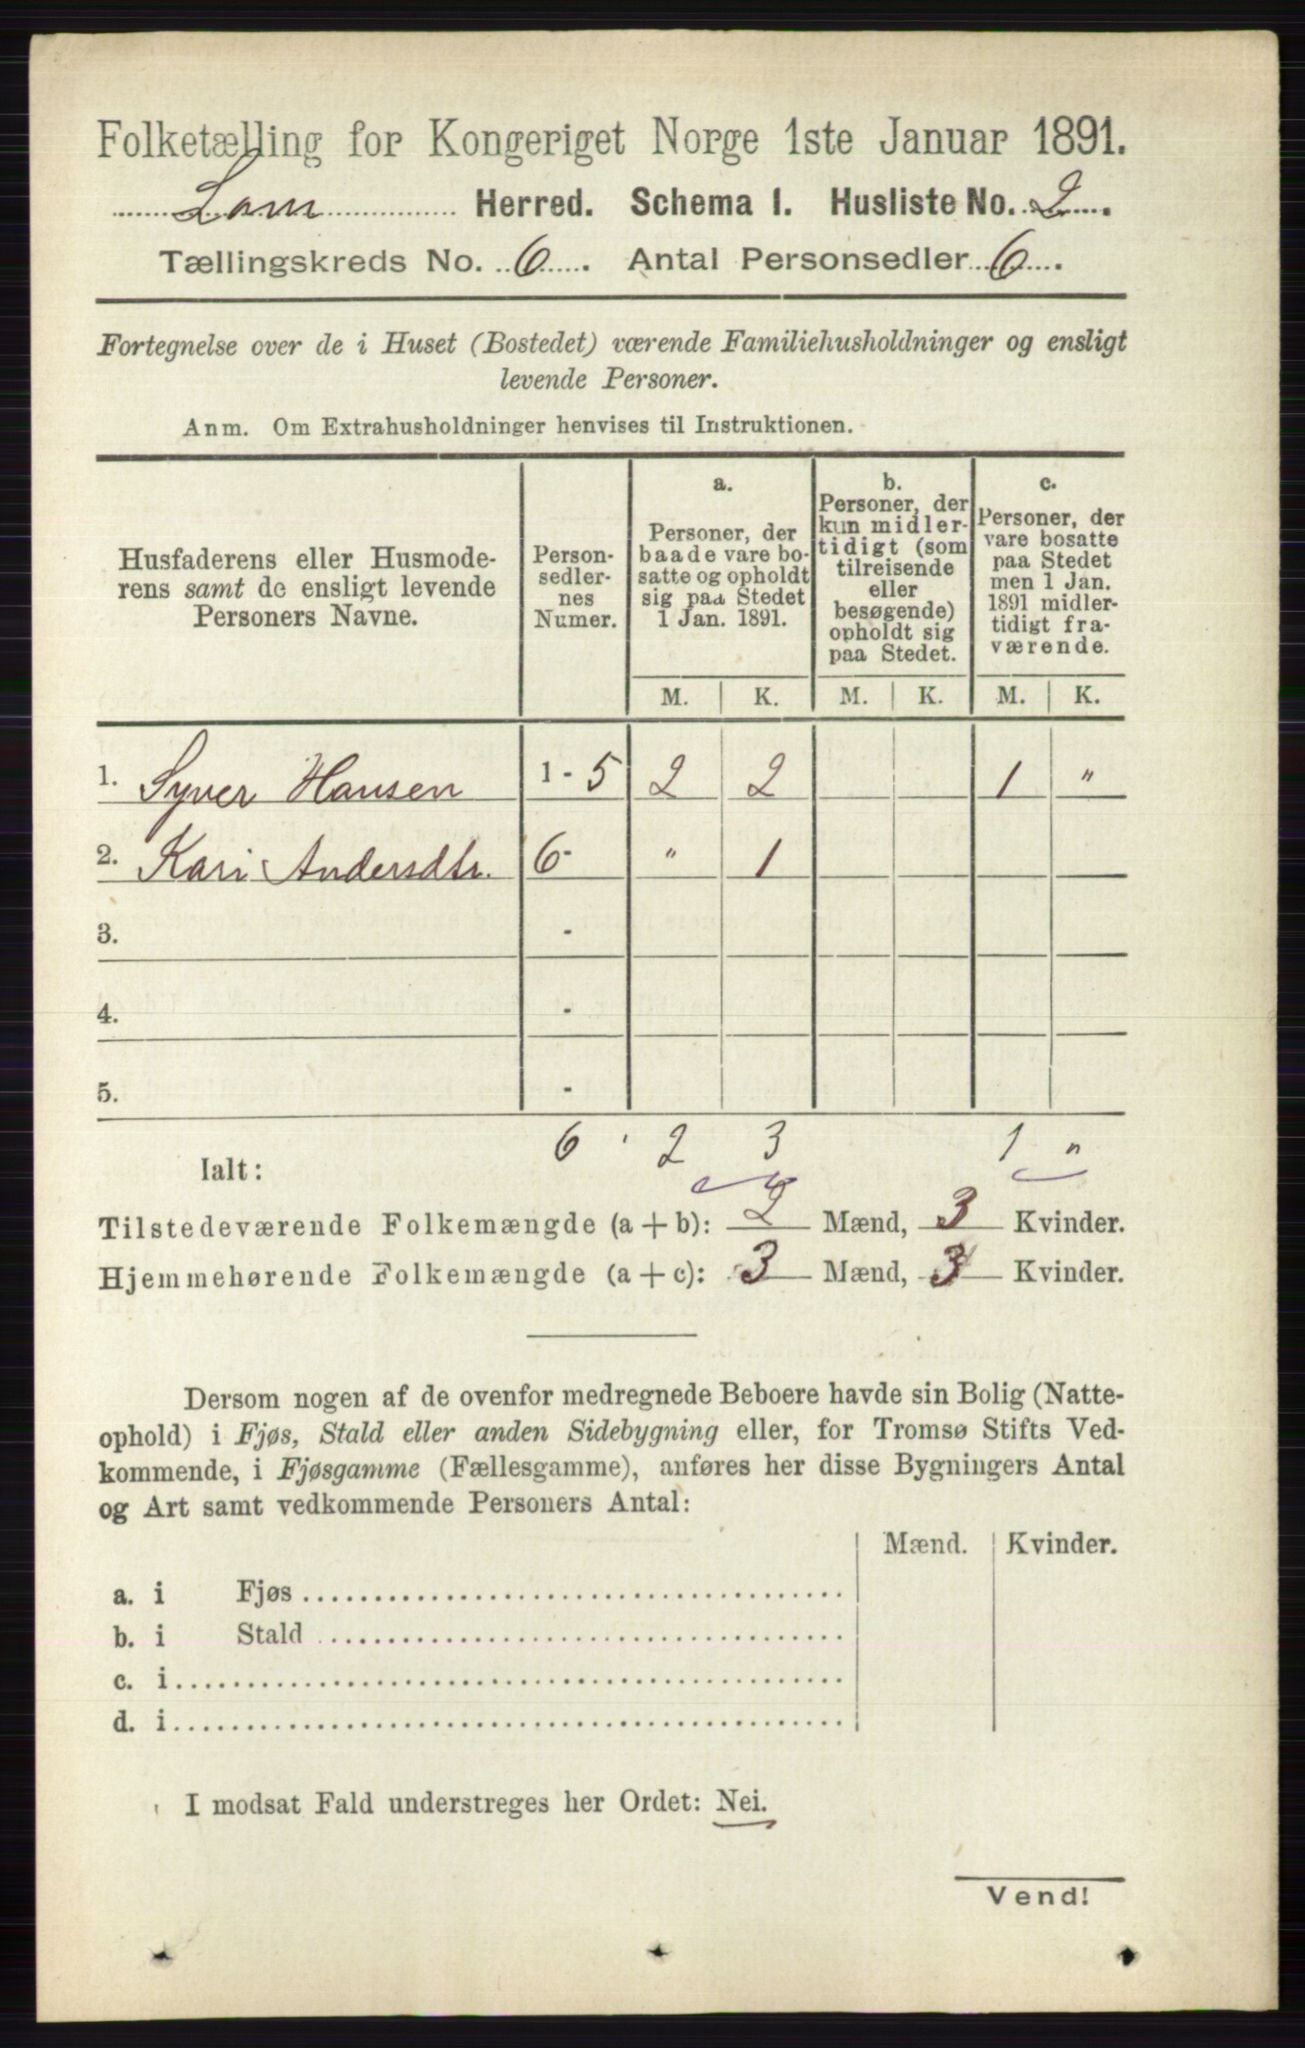 Folketælling for Kongeriget Norge 1ste Januar 1891.
Lom Herred. Schema I. Husliste No. 2.
Tællingskreds No. 6. Antal Personsedler 6.
Fortegnelse over de i Huset (Bostedet) værende Familiehusholdninger og ensligt
levende Personer.
Anm. Om Extrahusholdninger henvises til Instruktionen.
Husfaderens eller Husmode-
rens samt de ensligt levende
Personers Navne.
Person-
sedler-
nes
Numer.
a.
Personer, der
baade vare bo-
satte og opholdt
sig paa Stedet
1 Jan. 1891.
b.
Personer, der
kun midler-
tidigt (som
tilreisende
eller
besøgende)
opholdt sig
paa Stedet.
c.
Personer, der
vare bosatte
paa Stedet
men 1 Jan.
1891 midler-
tidigt fra-
værende.
M. K. M. K. M. K.
1. Syver Hansen 1 - 5 2 2 1 "
2. Kari Andersdtr. 6 - " 1
3. -
4. -
5. -
Ialt: 6 2 3 1 "
Tilstedeværende Folkemængde (a + b): 2 Mænd, 3 Kvinder.
Hjemmehørende Folkemængde (a + c): 3 Mænd, 3 Kvinder.
Dersom nogen af de ovenfor medregnede Beboere havde sin Bolig (Natte-
ophold) i Fjøs, Stald eller anden Sidebygning eller, for Tromsø Stifts Ved-
kommende, i Fjøsgamme (Fællesgamme), anføres her disse Bygningers Antal
og Art samt vedkommende Personers Antal:
Mænd. Kvinder.
a. i Fjøs
b. i Stald
c. i
d. i
I modsat Fald understreges her Ordet: Nei.
Vend!